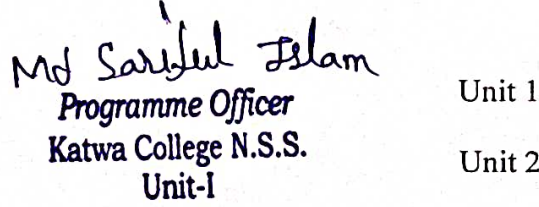 Md Sariful Islam
Programme Officer
Katwa College N.S.S.
Unit-I
Unit 1
Unit 2